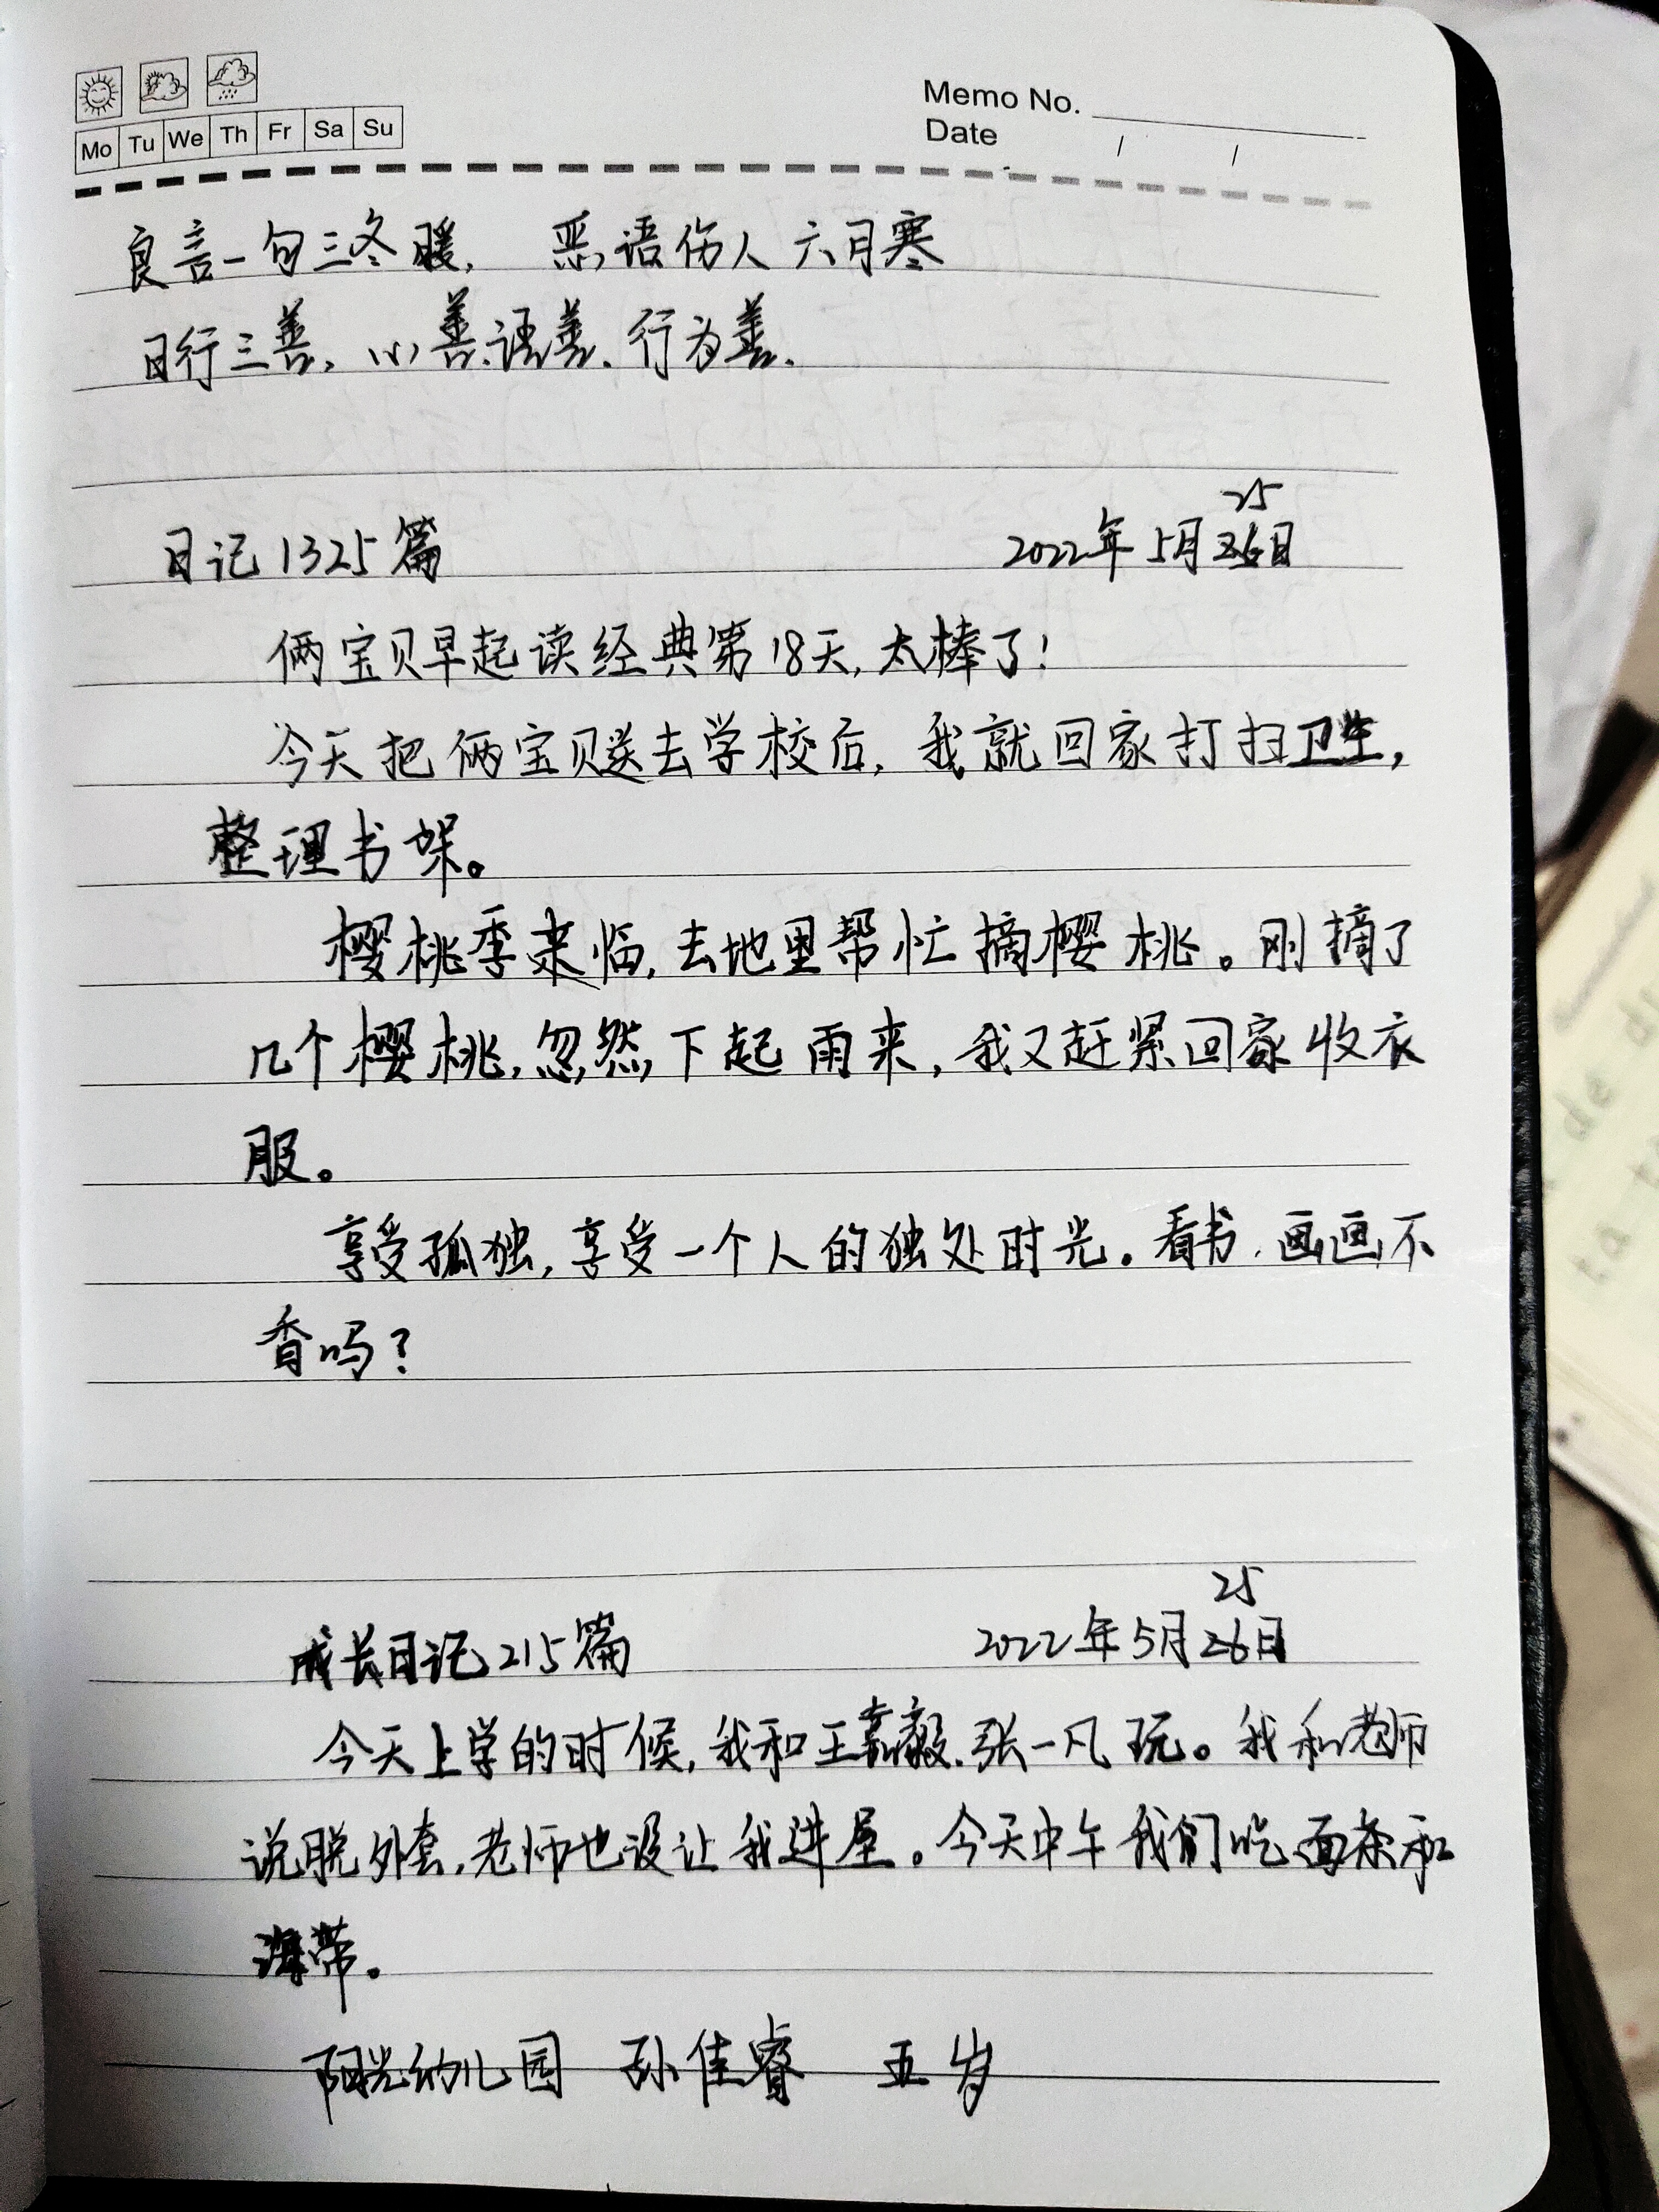 Memo No.
Mo Tu We Th Fr Sa Su
Date / /
良言一句三冬暖, 恶语伤人六月寒
日行三善, 心善.语善.行为善.
25
日记1325篇 2022年5月26日
俩宝贝早起读经典第18天,太棒了!
今天把俩宝贝送去学校后, 我就回家打扫卫生,
整理书架。
樱桃季来临,去地里帮忙摘樱桃。刚摘了
几个樱桃,忽然下起雨来, 我又赶紧回家收衣
服。
享受孤独,享受一个人的独处时光。看书.画画不
香吗?
25
成长日记215篇 2022年5月26日
今天上学的时候,我和王嘉毅.张一凡玩。我和老师
说脱外套,老师也没让我进屋。今天中午我们吃面条和
海带。
阳光幼儿园 孙佳睿 五岁
de